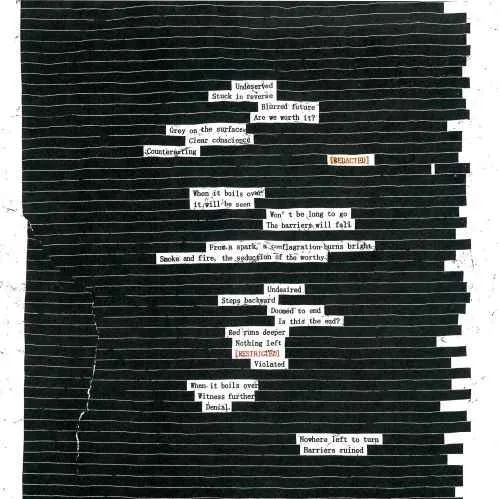 Undeserved
Stuck in reverse
Blurred future
Are we worth it?
Grey on the surface
Clear conscience
Counteracting
[REDACTED]
When it boils over
it will be seen
Won't be long to go
The barriers will fall
From a spark, a conflagration burns bright.
Smoke and fire, the seduction of the worthy.
Undesired
Steps backward
Doomed to end
Is this the end?
Red runs deeper
Nothing left
[RESTRICTED]
Violated
When it boils over
Witness further
Denial.
Nowhere left to turn
Barriers ruined